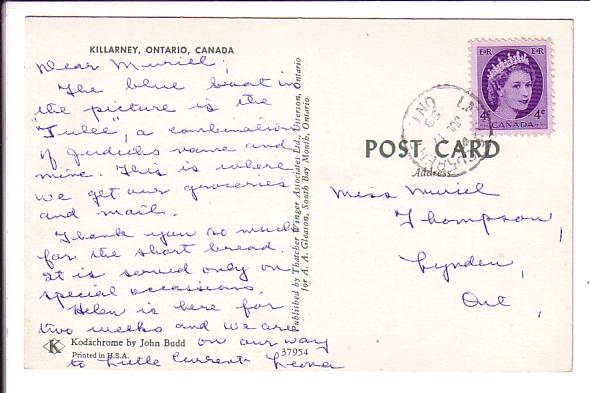 KILLARNEY, ONTARIO, CANADA
Dear Muriel,
The blue boat in
the picture is the
"Julee", a combination
of Judiths name and
mine. This is where
we get our groceries
and mail.
Thank you so much
for the short bread.
It is served only on
special occassions.
Helen is here for
two weeks and we are
on our way
to Little Current Leona
K
Kodachrome by John Budd
Printed in U.S.A.
37954
Published by Thatcher Winger Associates Ltd., Utterson, Ontario
for A. A. Gleason, South Bay Mouth, Ontario
E II R E II R
4c 4c
CANADA
ONT
POST CARD
Address
Miss Muriel
Thompson,
Lynden,
Ont,